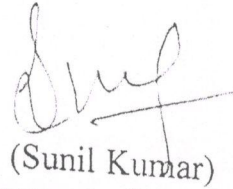 (Sunil Kumar)